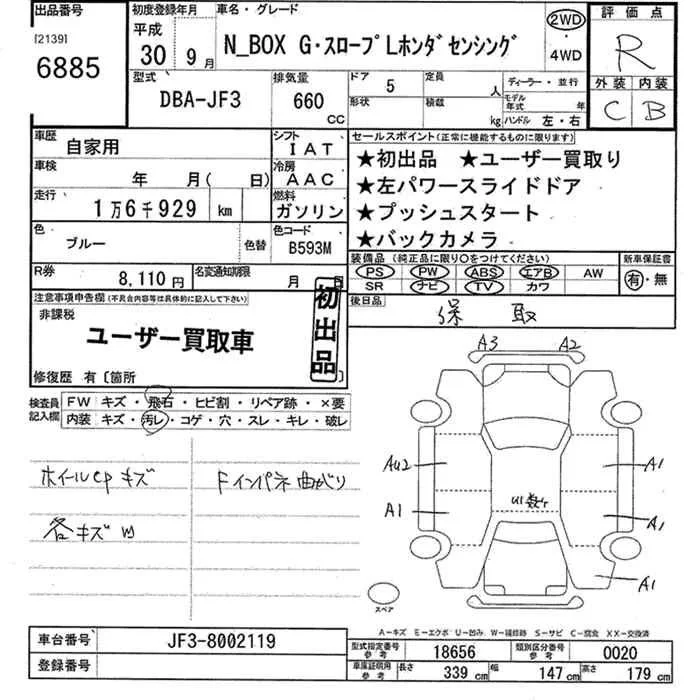 出品番号 初度登録年月 車名・グレード 評価点
[2139] 平成 2WD ・ 4WD
6885 30年 9月 N_BOX G・スロープLホンダセンシング R
型式 排気量 ドア 5 定員 人 ディーラー・並行 外装 内装
DBA-JF3 660 CC 形状 積載 kg モデル年式 年 ハンドル 左・右 C B
車歴 自家用 シフト IAT セールスポイント(正常に機能するものに限ります)
車検 年 月( 日) 冷房 AAC ★初出品 ★ユーザー買取り
走行 1万6千929 km 燃料 ガソリン ★左パワースライドドア
★プッシュスタート
色 ブルー 色替 色コード B593M ★バックカメラ
R券 8,110円 名変通知期限 月 日 装備品(純正品に限り○をつけてください) 新車保証書
PS PW ABS エアB AW 有・無
SR ナビ TV カワ
注意事項申告欄(不具合内容等は具体的に記入して下さい) 初出品 後日品 保 取
非課税
ユーザー買取車
修復歴 有〔箇所 〕
A3 A2
検査員記入欄 FW キズ・飛石・ヒビ割・リペア跡・×要
内装 キズ・汚レ・コゲ・穴・スレ・キレ・破レ
ホイールcpキズ Fインパネ曲がり
AU2 A1
U1数ケ
A1 A1
各キズW
A1
スペア
A―キズ E―エクボ U―凹み W―補修跡 S―サビ C―腐食 XX―交換済
車台番号 JF3-8002119 型式指定番号 参考 18656 類別区分番号 参考 0020
登録番号 車庫証明用 参考 長さ 339cm 幅 147cm 高さ 179cm